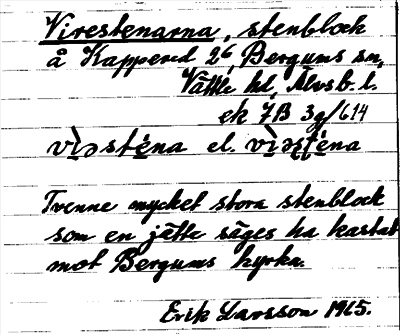 Virestenarna, stenblock
å Kapperud 2⁶, Bergums sn,
Vättle hd, Älvsb. l.
ek 7B 3g/614
vìəsténa el. 
Tvenne mycket stora stenblock
som en jätte säges ha kastat
mot Bergums kyrka.
Erik Larsson 1965.